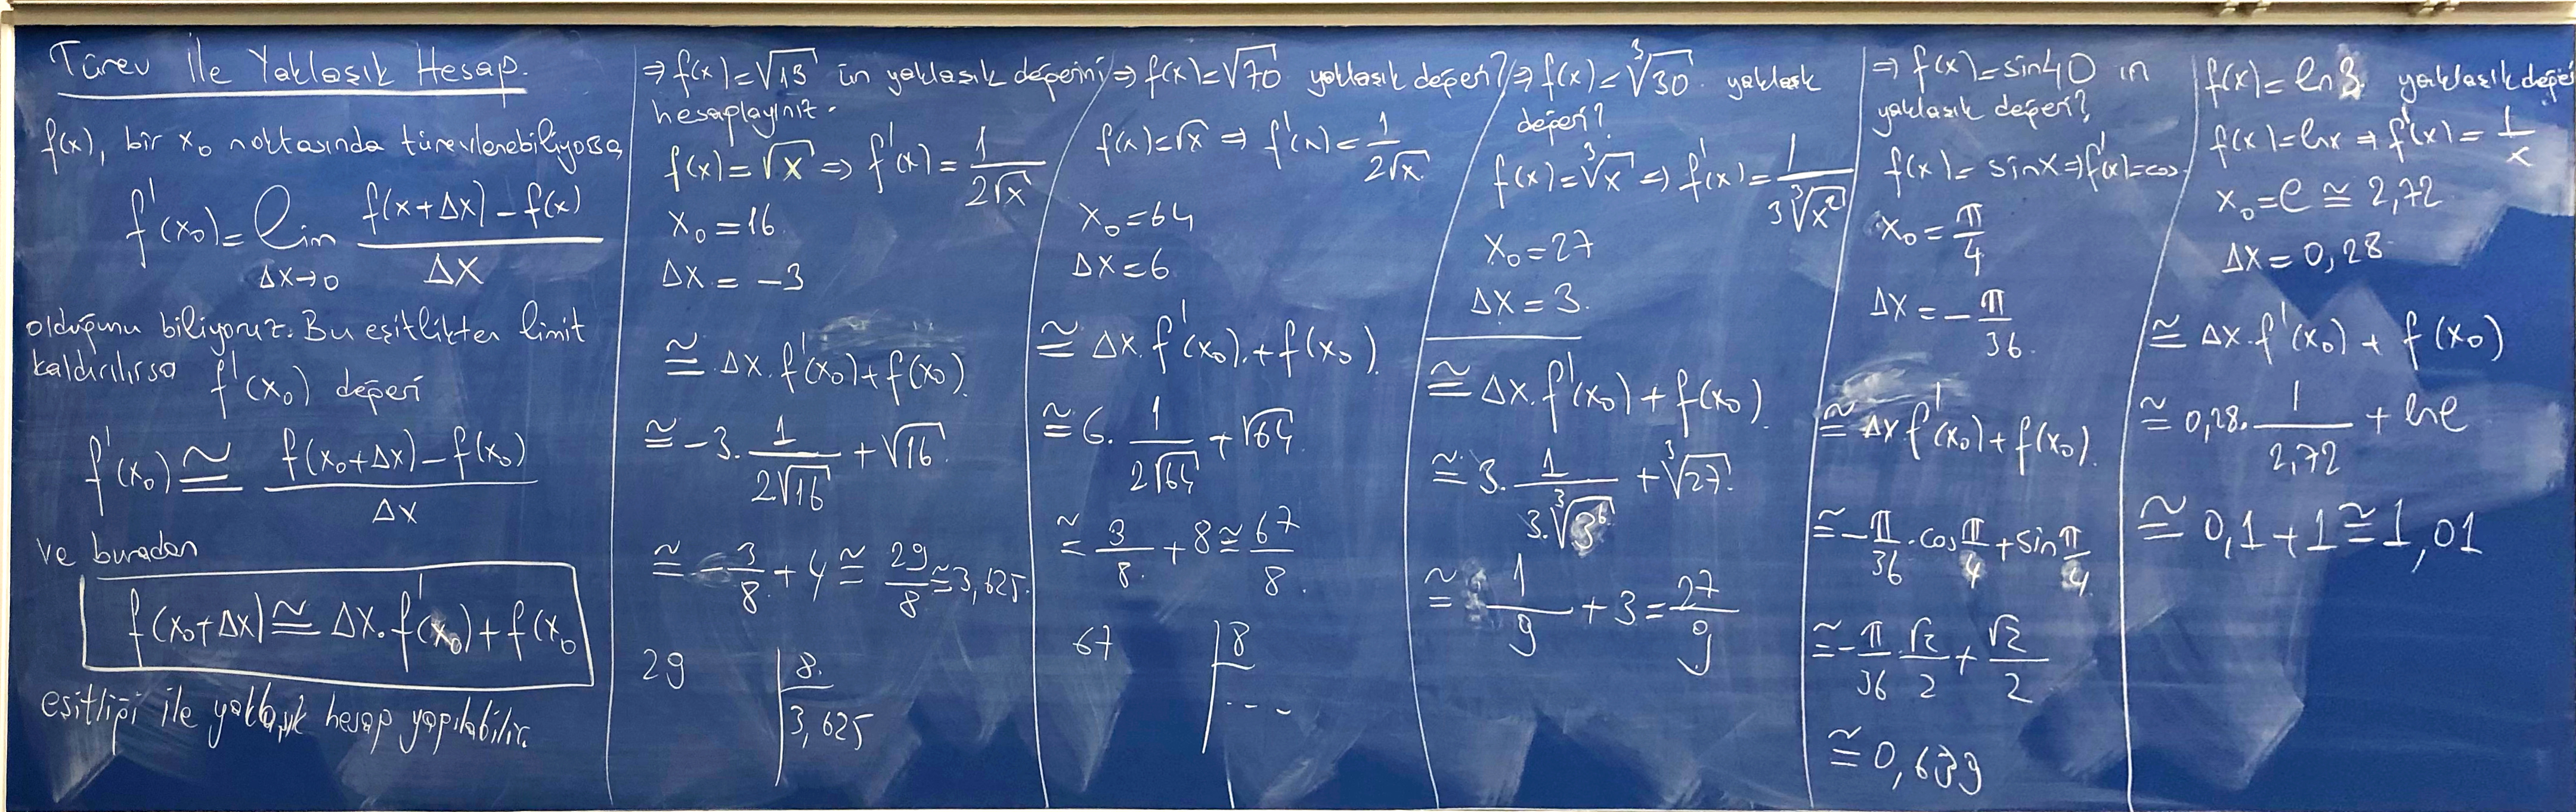 Türev İle Yaklaşık Hesap.
f(x), bir x₀ noktasında türevlenebiliyorsa,
f'(x₀) = lim Δx→0 (f(x+Δx) - f(x)) / Δx
olduğunu biliyoruz. Bu eşitlikten limit
kaldırılırsa f'(x₀) değeri
f'(x₀) ≅ (f(x₀+Δx) - f(x₀)) / Δx
ve buradan
f(x₀+Δx) ≅ Δx.f'(x₀) + f(x₀
eşitliği ile yaklaşık hesap yapılabilir.
⇒ f(x) = √13 ün yaklaşık değerini
hesaplayınız.
f(x) = √x ⇒ f'(x) = 1 / 2√x
x₀ = 16
Δx = -3
≅ Δx.f'(x₀) + f(x₀).
≅ -3. 1 / 2√16 + √16
≅ - 3/8 + 4 ≅ 29/8 ≅ 3,625.
29 | 8
3,625
⇒ f(x) = √70 yaklaşık değeri?
f(x) = √x ⇒ f'(x) = 1 / 2√x
x₀ = 64
Δx = 6
≅ Δx.f'(x₀).+f(x₀).
≅ 6. 1 / 2√64 + √64
≅ 3/8 + 8 ≅ 67/8.
67 | 8
...
⇒ f(x) = ∛30 yaklaşık
değeri?
f(x) = ∛x ⇒ f'(x) = 1 / 3∛x²
x₀ = 27
Δx = 3.
≅ Δx.f'(x₀) + f(x₀).
≅ 3. 1 / 3.∛3⁶ + ∛27
≅ 1/9 + 3 = 27/9
⇒ f(x) = sin40 ın
yaklaşık değeri?
f(x) = sinx ⇒ f'(x) = cos
x₀ = π/4
Δx = - π/36
≅ Δx f'(x₀) + f(x₀).
≅ - π/36 . cos π/4 + sin π/4
≅ - π/36 √2/2 + √2/2
≅ 0,639
f(x) = ln3 yaklaşık değeri
f(x) = lnx ⇒ f'(x) = 1/x
x₀ = e ≅ 2,72
Δx = 0,28
≅ Δx.f'(x₀) + f(x₀)
≅ 0,28. 1 / 2,72 + lne
≅ 0,1 + 1 ≅ 1,01